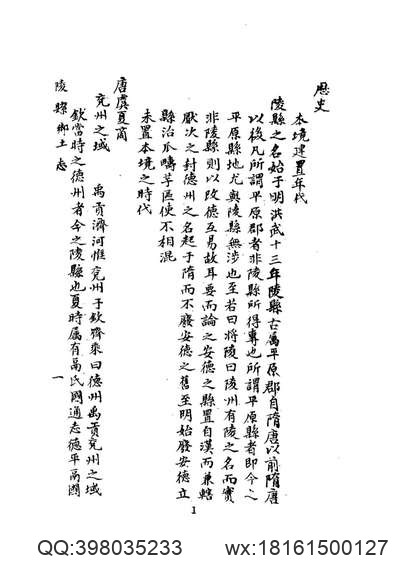 歷史
本境建置年代
陵縣之名始于明洪武十三年陵縣古屬平原郡自隋唐以前隋唐
以後凡所謂平原郡者非陵縣所得專也所謂平原縣者即今之
平原縣地尤與陵縣無涉也至若曰將陵曰陵州有陵之名而實
非陵縣則以改德互易故耳要而論之安德之縣置自漢而兼轄
厭次之封德州之名起于隋而不廢安德之舊至明始廢安德立
縣治瓜疇芋區使不相混
未置本境之時代
唐虞夏商
兗州之域　禹貢濟河惟兗州于欽齊乘曰德州禹貢兗州之域
欽當時之德州者今之陵縣也夏時屬有鬲氏國通志德平鬲國
陵縣鄉土志
一
1
QQ:398035233
wx:18161500127